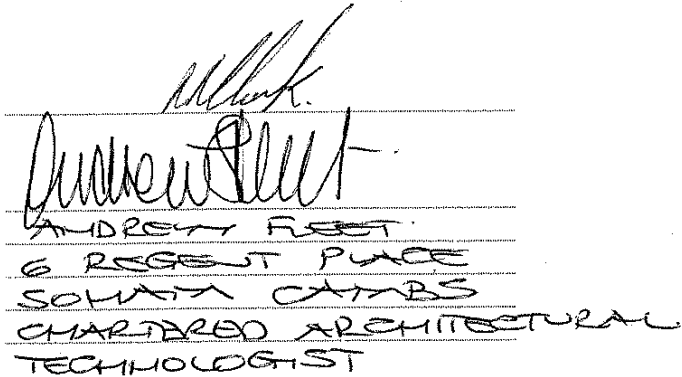 Andrew Fleet.
ANDREW FLEET.
6 REGENT PLACE
SOHAM CAMBS
CHARTERED ARCHITECTURAL
TECHNOLOGIST